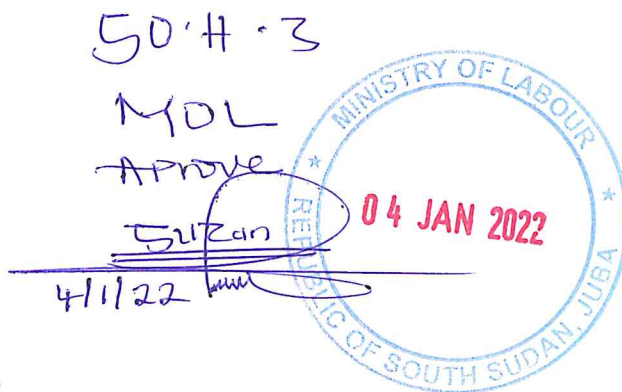 50·H·3
MOL
Aprove
Suzan
4/1/22
MINISTRY OF LABOUR
04 JAN 2022
REPUBLIC OF SOUTH SUDAN, JUBA